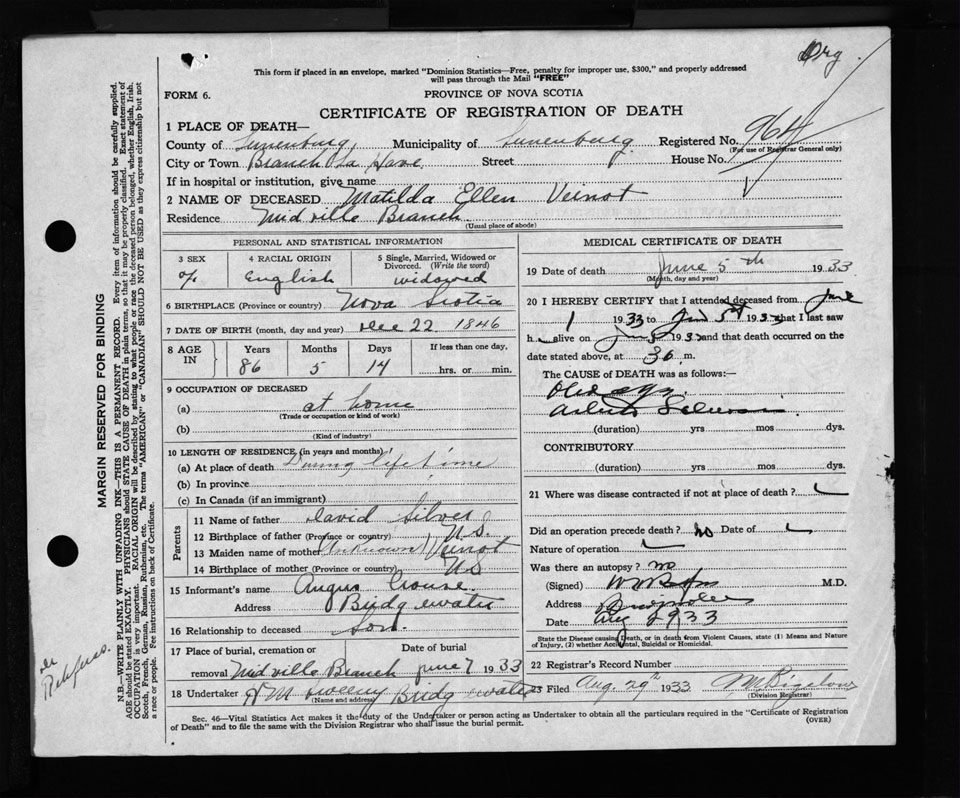 Org
This form if placed in an envelope, marked "Dominion Statistics—Free, penalty for improper use, $300," and properly addressed
will pass through the Mail "FREE"
FORM 6.
PROVINCE OF NOVA SCOTIA
CERTIFICATE OF REGISTRATION OF DEATH
1 PLACE OF DEATH—
County of Lunenburg, Municipality of Lunenburg Registered No. 964
(For use of Registrar General only)
City or Town Branch La Have Street House No.
If in hospital or institution, give name
2 NAME OF DECEASED Matilda Ellen Veinot
Residence Midville Branch
(Usual place of abode)
PERSONAL AND STATISTICAL INFORMATION
3 SEX 4 RACIAL ORIGIN 5 Single, Married, Widowed or Divorced. (Write the word)
English widowed
6 BIRTHPLACE (Province or country) Nova Scotia
7 DATE OF BIRTH (month, day and year) Dec 22 1846
8 AGE IN Years Months Days If less than one day,
86 5 14 hrs. or min.
9 OCCUPATION OF DECEASED
(a) at home
(Trade or occupation or kind of work)
(b)
(Kind of industry)
10 LENGTH OF RESIDENCE (in years and months)
(a) At place of death During lifetime
(b) In province
(c) In Canada (if an immigrant)
Parents
11 Name of father David Silver
12 Birthplace of father (Province or country) N.S.
13 Maiden name of mother (Unknown) Veinot
14 Birthplace of mother (Province or country) NS
15 Informant's name Angus Crouse
Address Bridgewater
16 Relationship to deceased Son
17 Place of burial, cremation or removal Midville Branch Date of burial June 7 1933
18 Undertaker H M Sweeny Bridgewater
(Name and address)
MEDICAL CERTIFICATE OF DEATH
19 Date of death June 5th 1933
(Month, day and year)
20 I HEREBY CERTIFY that I attended deceased from June
1 1933 to June 5th 1933 that I last saw
h alive on 1933 and that death occurred on the
date stated above, at 3 m.
The CAUSE OF DEATH was as follows:—
Old age
(duration) yrs mos dys.
CONTRIBUTORY
(duration) yrs mos dys.
21 Where was disease contracted if not at place of death?
Did an operation precede death? no Date of
Nature of operation
Was there an autopsy? no
(Signed) M.D.
Address
Date Aug 29 33
State the Disease causing Death, or in death from Violent Causes, state (1) Means and Nature
of Injury, (2) whether Accidental, Suicidal or Homicidal.
22 Registrar's Record Number
23 Filed Aug. 29th 1933 Bigelow
(Division Registrar)
Sec. 46—Vital Statistics Act makes it the duty of the Undertaker or person acting as Undertaker to obtain all the particulars required in the "Certificate of Registration
of Death" and to file the same with the Division Registrar who shall issue the burial permit.
(OVER)
MARGIN RESERVED FOR BINDING
N.B.—WRITE PLAINLY WITH UNFADING INK—THIS IS A PERMANENT RECORD. Every item of information should be carefully supplied.
AGE should be stated EXACTLY. PHYSICIANS should STATE CAUSE OF DEATH in plain terms, so that it may be properly classified. Exact statement of
OCCUPATION is very important. RACIAL ORIGIN will be described by stating to what people or race the deceased person belonged, whether English, Irish,
Scotch, French, German, Russian, Ruthenian, etc. The terms "AMERICAN" or "CANADIAN" SHOULD NOT BE USED as they express citizenship but not
a race or people. See instructions on back of Certificate.